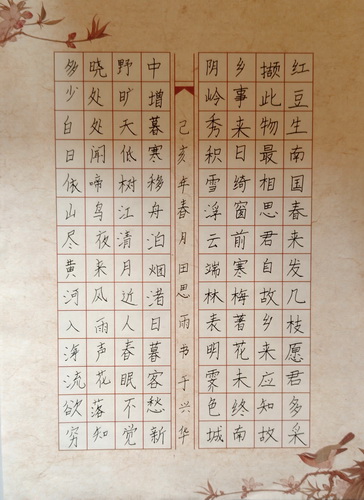 红豆生南国春来发几枝愿君多采
撷此物最相思君自故乡来应知故
乡事来日绮窗前寒梅著花未终南
阴岭秀积雪浮云端林表明霁色城
己亥年春月田思雨书于兴华
中增暮寒移舟泊烟渚日暮客愁新
野旷天低树江清月近人春眠不觉
晓处处闻啼鸟夜来风雨声花落知
多少白日依山尽黄河入海流欲穷